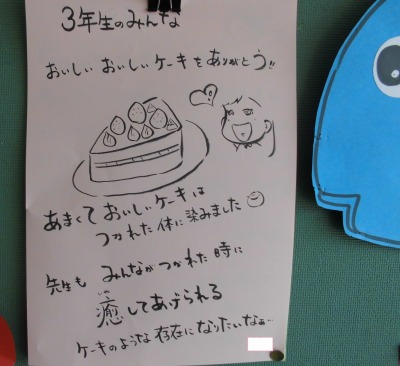 3年生のみんな
おいしい おいしいケーキをありがとう!!
あまくておいしいケーキは
つかれた体に染みました
先生も みんながつかれた時に
癒してあげられる
ケーキのような存在になりたいなぁ…